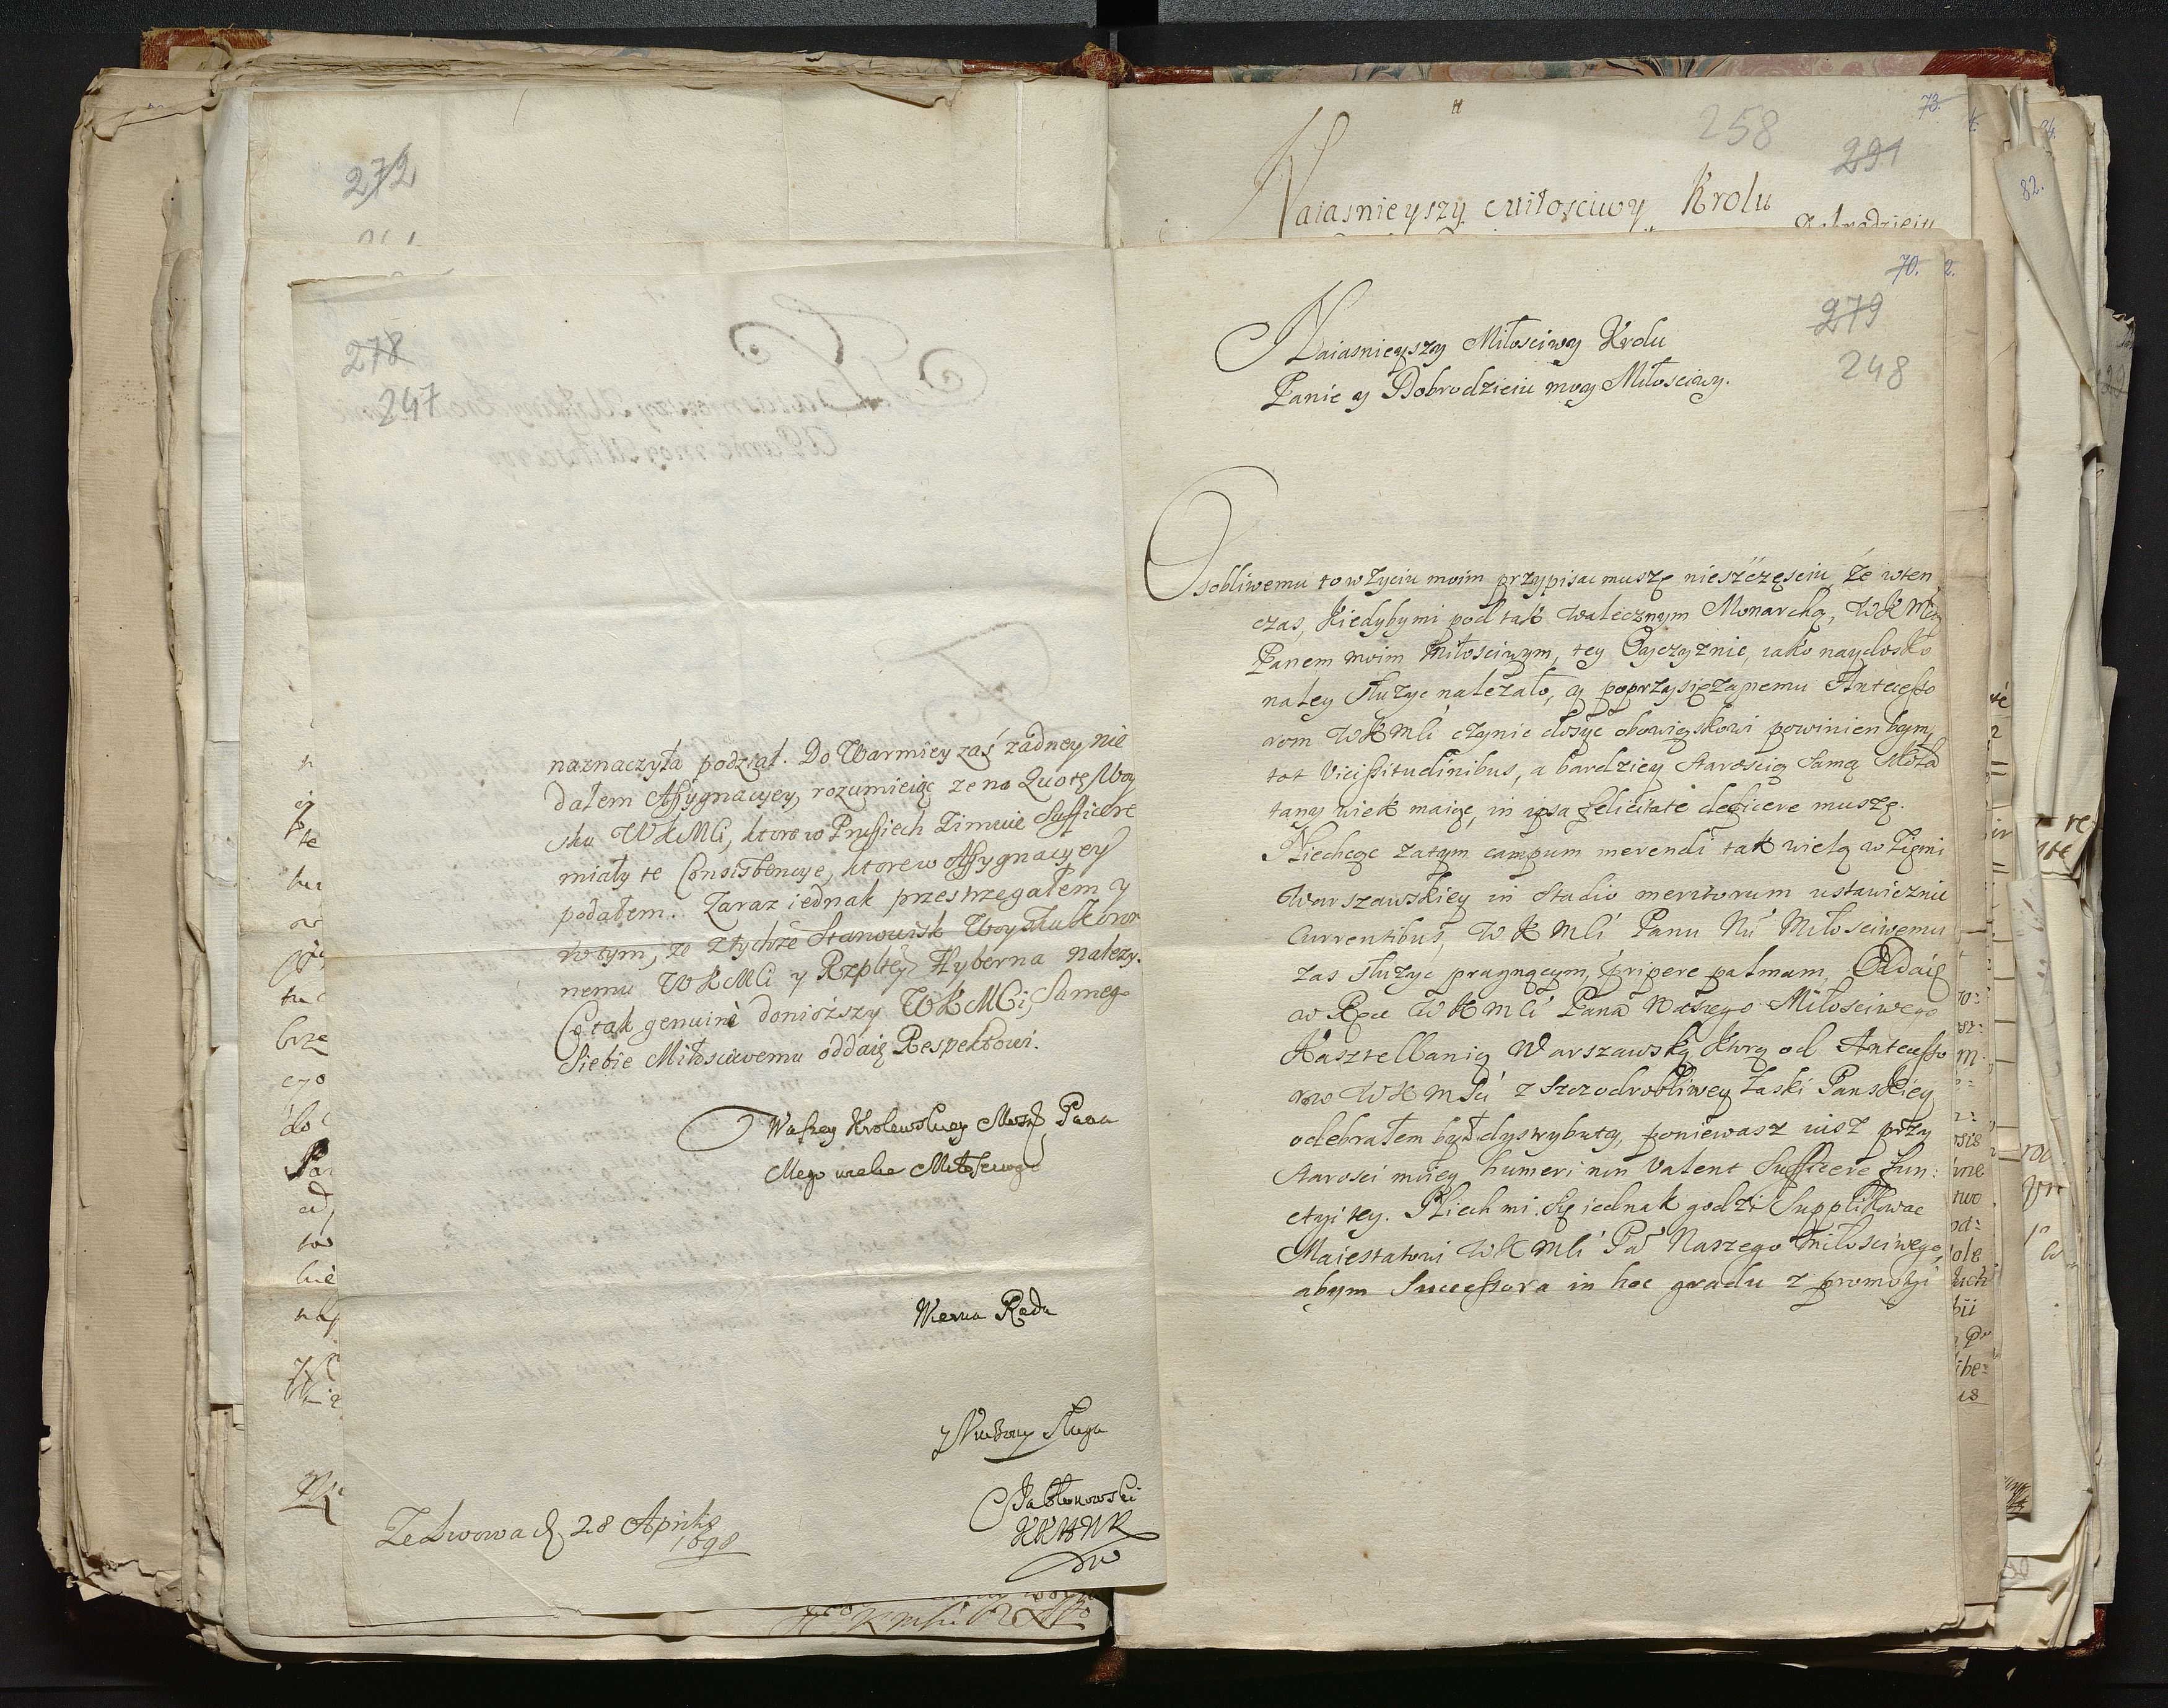 272
278
247
naznaczyła podział. Do Warmiey zaś żadney nie
dałem Assygnacyey, rozumieiąc ze na Quotę Woy
sku WKMCi, ktore w Prusiech Zimuie Sufficere
miały te Consistencye, ktore w Assygnacyey
podałem. Zaraz iednak przestrzegałem y
w tym, ze z tychze Stanowisk Woysku
nemu WKMCi y Rzpltey Hyberna nalezy.
Co tak genuinè doniozszy WKMCi, Samego
Siebie Miłosciwemu oddaię Respektowi.
Waszey Krolewskiey Mosci Pana
Mego wielce Miłosciwego
Wierna Rada
y Sługa
Jabłonowski
KKHWK
Ze Lwowa d. 28 Aprilis
1698
73.
258
291
Naiasnieyszy Miłosciwy Krolu
70.
2.
279
248
Naiasnieyszy Miłosciwy Krolu
Panie y Dobrodzieiu moy Miłosciwy.
Osobliwemu to w Zyciu moim przypisac muszę nieszczęsciu, że wten
czas, Kiedyby mi pod tak walecznym Monarchą, WKMcią
Panem moim Miłosciwym, tey Oyczyznie, iako naydosko
naley słuzyc nalezało, y poprzysięzanemu Antecesso
rom WKMCi czynic dosyc obowięskowi powinien bym,
tot Vicissitudinibus, a bardziey staroscią samą skoła
tany wiek maiąc, in ipsa felicitate deficere muszę.
Niechcąc zatym campum merendi tak wielą w Ziemi
Warszawskiey in Stadio meritorum ustawicznie
Currentibus, WKMCi Panu Nu Miłosciwemu
zas słuzyc pragnącym, pripere palmam, Oddaię
w Ręce WKMCi Pana Naszego Miłosciwego
Kasztellanią Warszawską Ktorą od Antecesso
row WKMsci z szczodrobliwey Łaski Panskiey
odebrałem był dystrybutą, poniewasz iusz przy
starosci moiey humeri non Valent Sufficere fun:
ctyi tey. Niech mi się iednak godzi Supplikowac
Maiestatowi WKMCi Pa Naszego Miłosciwego,
abym Successora in hoc gradu z promotyi
82.